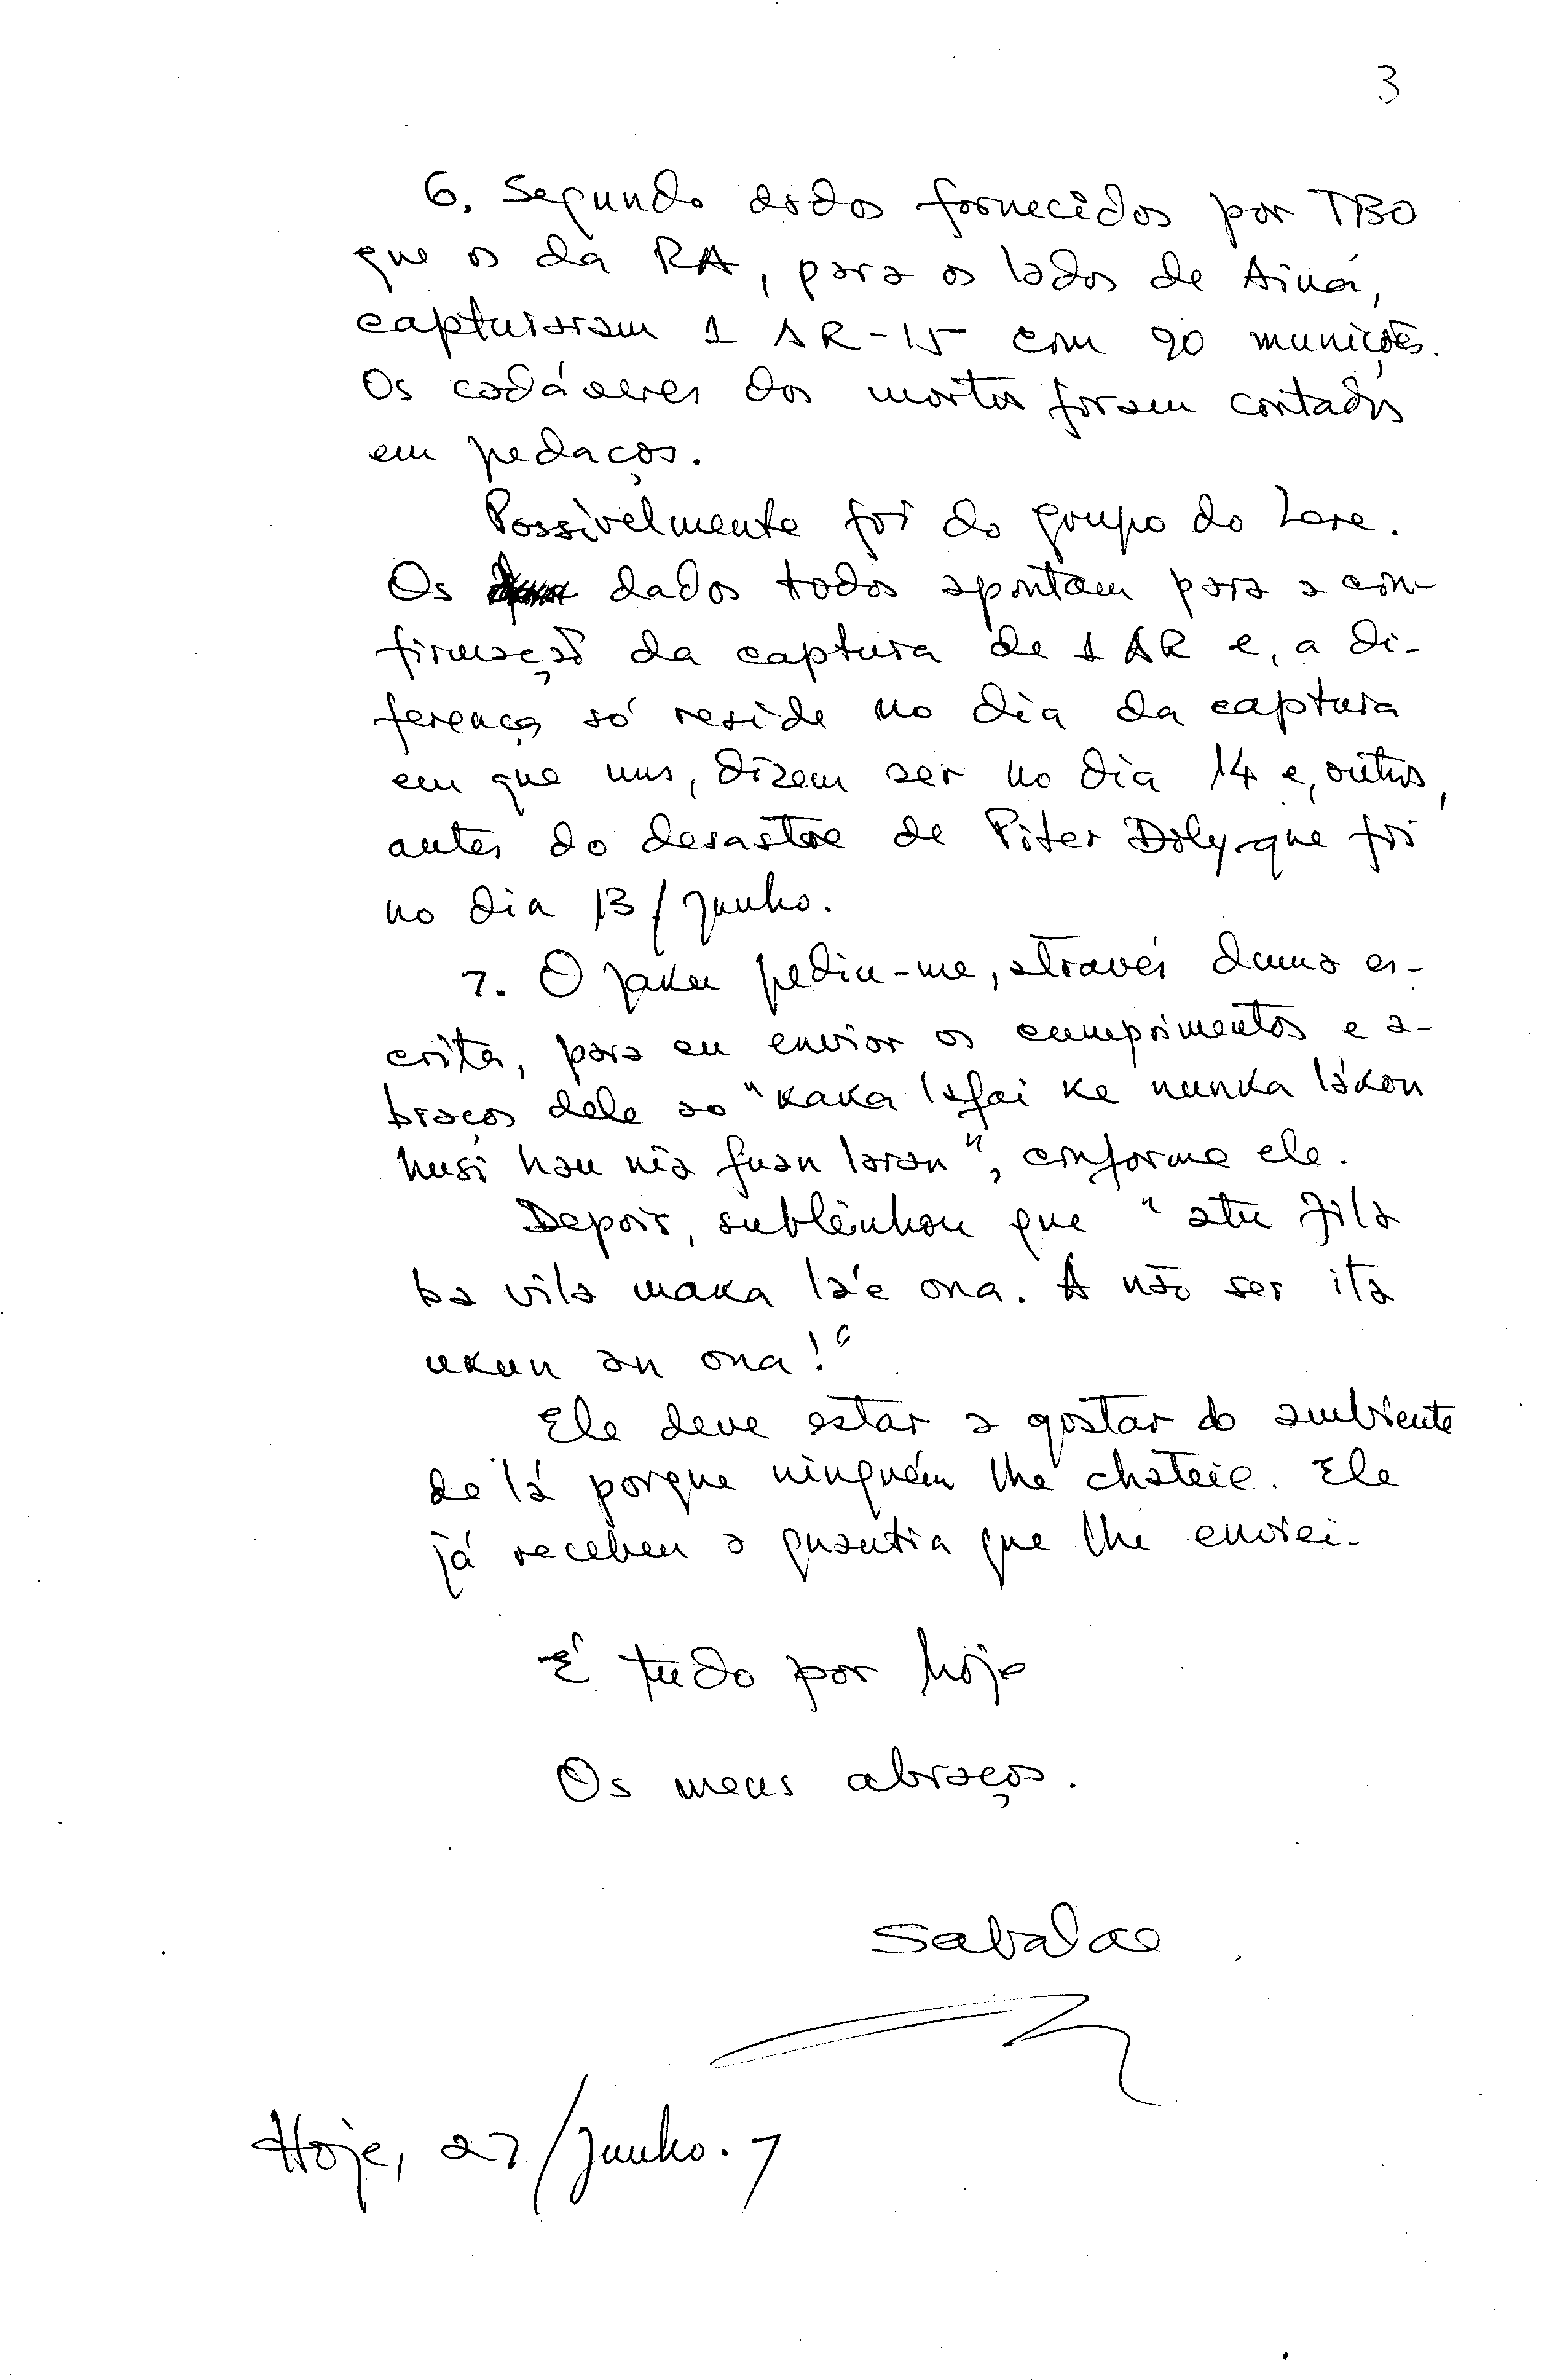 3
6. Segundo dados fornecidos por TBO
que os da RA, para os lados de Ainá,
capturaram 1 AR-15 com 90 munições.
Os cadáveres dos mortos foram contados
em pedaços.
Possivelmente foi do grupo do Lere.
Os dados todos apontam para a con-
firmação da captura de 1 AR e, a di-
ferença só reside no dia da captura
em que uns, dizem ser no dia 14 e, outros,
antes do desastre de Piter Doly que foi
no dia 13/junho.
7. O Jaku pediu-me, através duma es-
crita, para eu enviar os cumprimentos e a-
braços dele ao "kaka lafai ke nunka lákon
husi hau nia fuan laran", conforme ele.
Depois, sublinhou que "atu fila
ba vila maka lá'e ona. A não ser ita
ukun an ona!"
Ele deve estar a gostar do ambiente
de lá porque ninguém lhe chateie. Ele
já recebeu a quantia que lhe enviei.
É tudo por hoje
Os meus abraços.
Sabalae
Hoje, 27/junho.